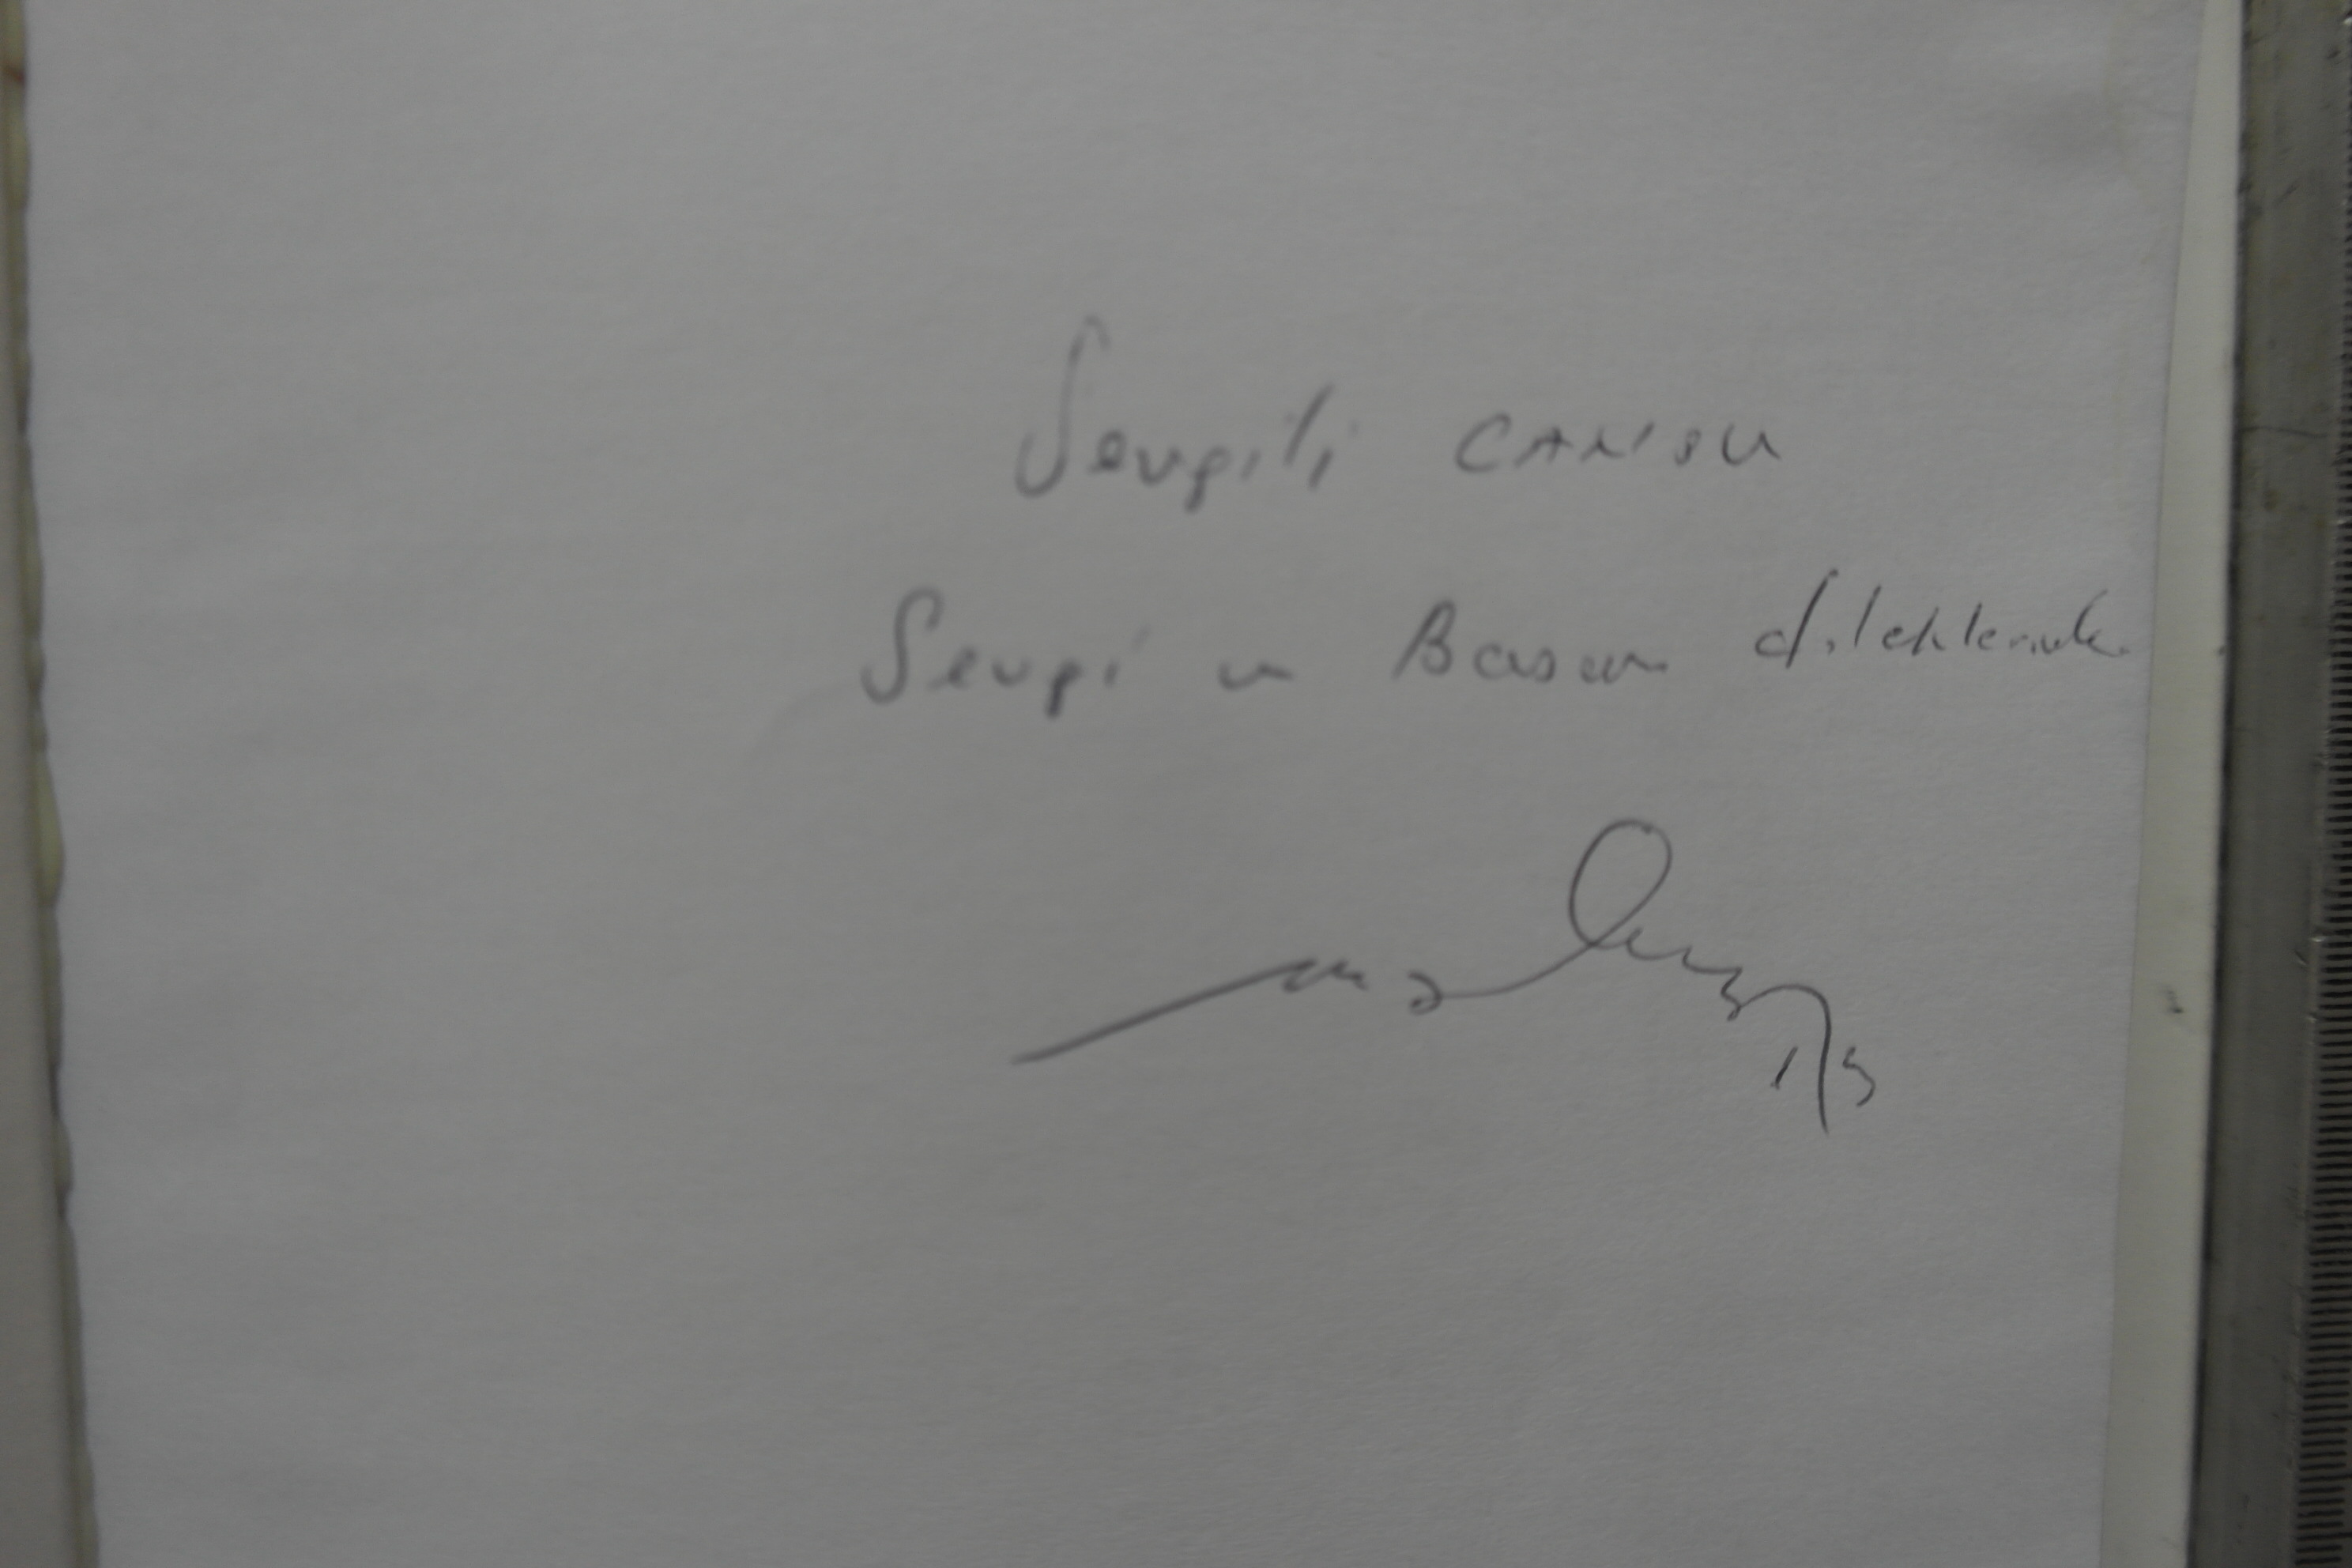 Sevgili CANSU
Sevgi ve Başarı dileklerimle